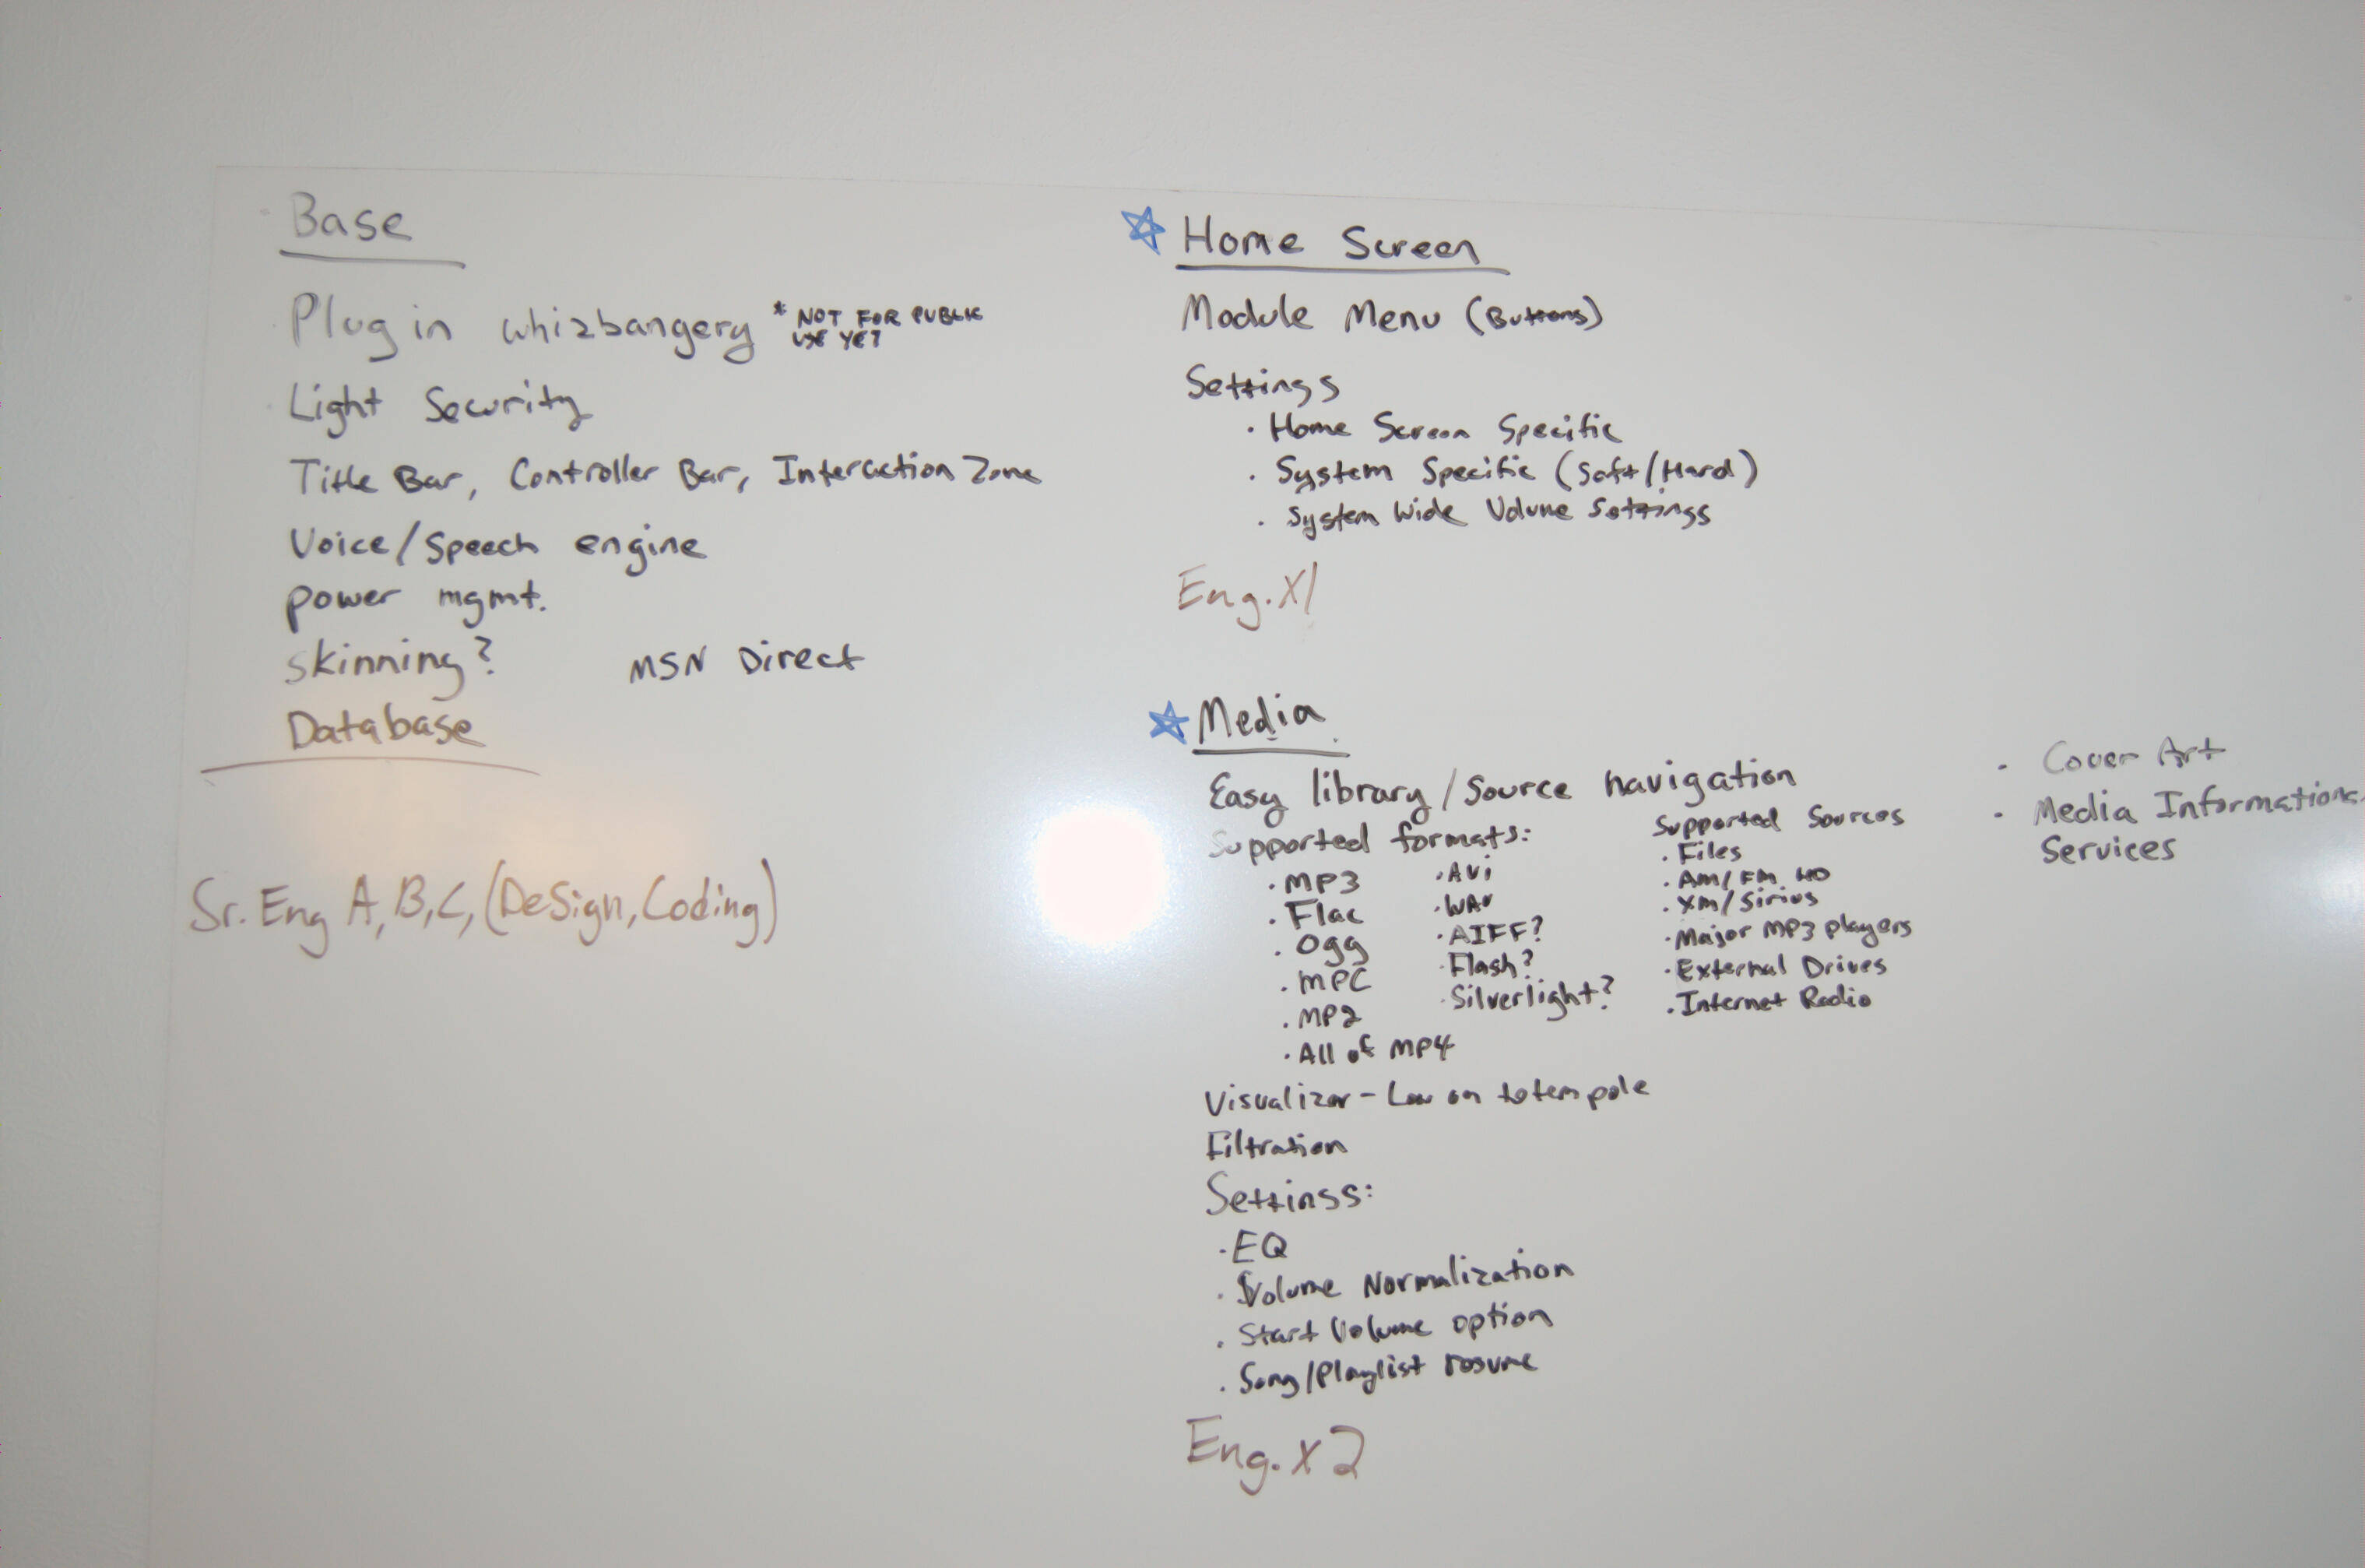 Base
Plugin whizbangery * NOT FOR PUBLIC
USE YET
Light Security
Title Bar, Controller Bar, Interaction Zone
Voice/Speech engine
power mgmt.
skinning? MSN Direct
Database
Sr. Eng A, B, C, (DeSign, Coding)
Home Screen
Module Menu (Buttons)
Settings
· Home Screen Specific
· System Specific (Soft/Hard)
· System Wide Volume Settings
Eng. X1
Media
Easy library/Source navigation
Supported formats:
· MP3
· Flac
· Ogg
· MPC
· MP2
· All of MP4
· Avi
· WAV
· AIFF?
· Flash?
· Silverlight?
Supported Sources
· Files
· AM/FM HD
· XM/Sirius
· Major MP3 players
· External Drives
· Internet Radio
· Cover Art
· Media Informations
Services
Visualizer - Low on totem pole
Filtration
Settings:
· EQ
· Volume Normalization
· Start Volume option
· Song/Playlist resume
Eng. X2